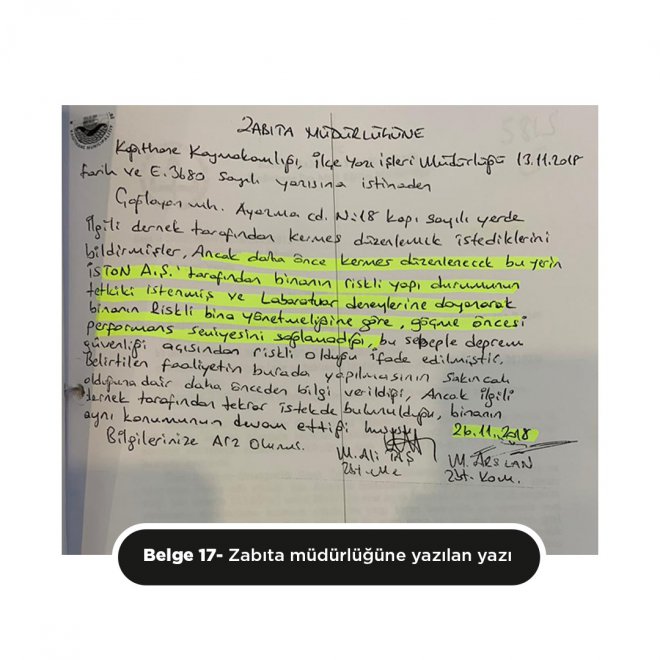 ZABITA MÜDÜRLÜĞÜNE
Kağıthane Kaymakamlığı, İlçe Yazı İşleri Müdürlüğü 13.11.2018
tarih ve E.3680 sayılı yazısına istinaden
Çağlayan mh. Ayazma cd. N:18 kapı sayılı yerde
ilgili dernek tarafından kermes düzenlemek istediklerini
bildirmişler, Ancak daha önce kermes düzenlenecek bu yerin
İSTON A.Ş. tarafından binanın riskli yapı durumunun
tetkiki istenmiş ve Laboratuar deneylerine dayanarak
binanın Riskli bina yönetmeliğine göre, göçme öncesi
performans seviyesini sağlamadığı, bu sebeple deprem
güvenliği açısından riskli olduğu ifade edilmiştir.
Belirtilen faaliyetin burada yapılmasının sakıncalı
olduğuna dair daha önceden bilgi verildiği, Ancak ilgili
dernek tarafından tekrar istekde bulunulduğu, binanın
aynı konumunun devam ettiği
26.11.2018
Bilgilerinize Arz Olunur.
M. Ali TAŞ
Zbt. Me
M. ARSLAN
Zbt. Kom.
Belge 17- Zabıta müdürlüğüne yazılan yazı